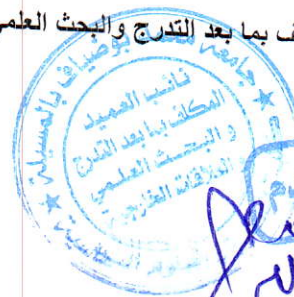 ف بما بعد التدرج والبحث العلمي
جامعة محمد بوضياف بالمسيلة
نائب العميد
المكلف بما بعد التدرج
و البحث العلمي
و العلاقات الخارجية